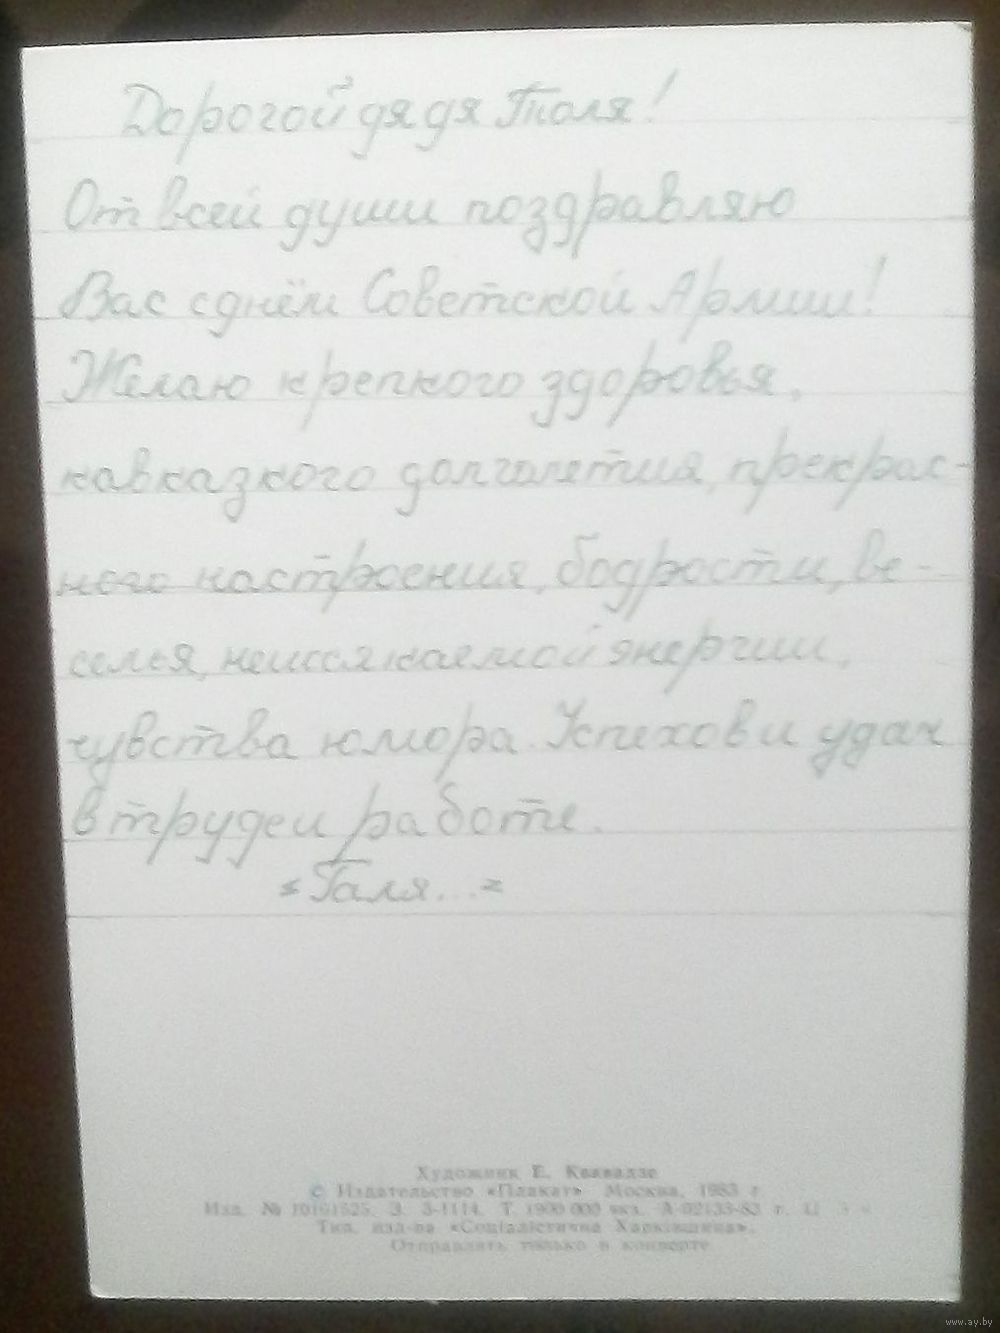 Дорогой дядя Толя!
От всей души поздравляю
Вас с днём Советской Армии!
Желаю крепкого здоровья,
кавказкого долголетия, прекрас-
ного настроения, бодрости, ве-
селья, неиссякаемой энергии,
чувства юмора. Успехов и удач
в труде и работе.
"Галя..."
Художник Е. Квавадзе
© Издательство «Плакат» Москва, 1983 г
Изд. № 10101525. З. 3-1114. Т. 1900 000 экз. А-02133-83 г. Ц. 3 к
Тип. изд-ва «Соціалістична Харківщина».
Отправлять только в конверте
www.ay.by